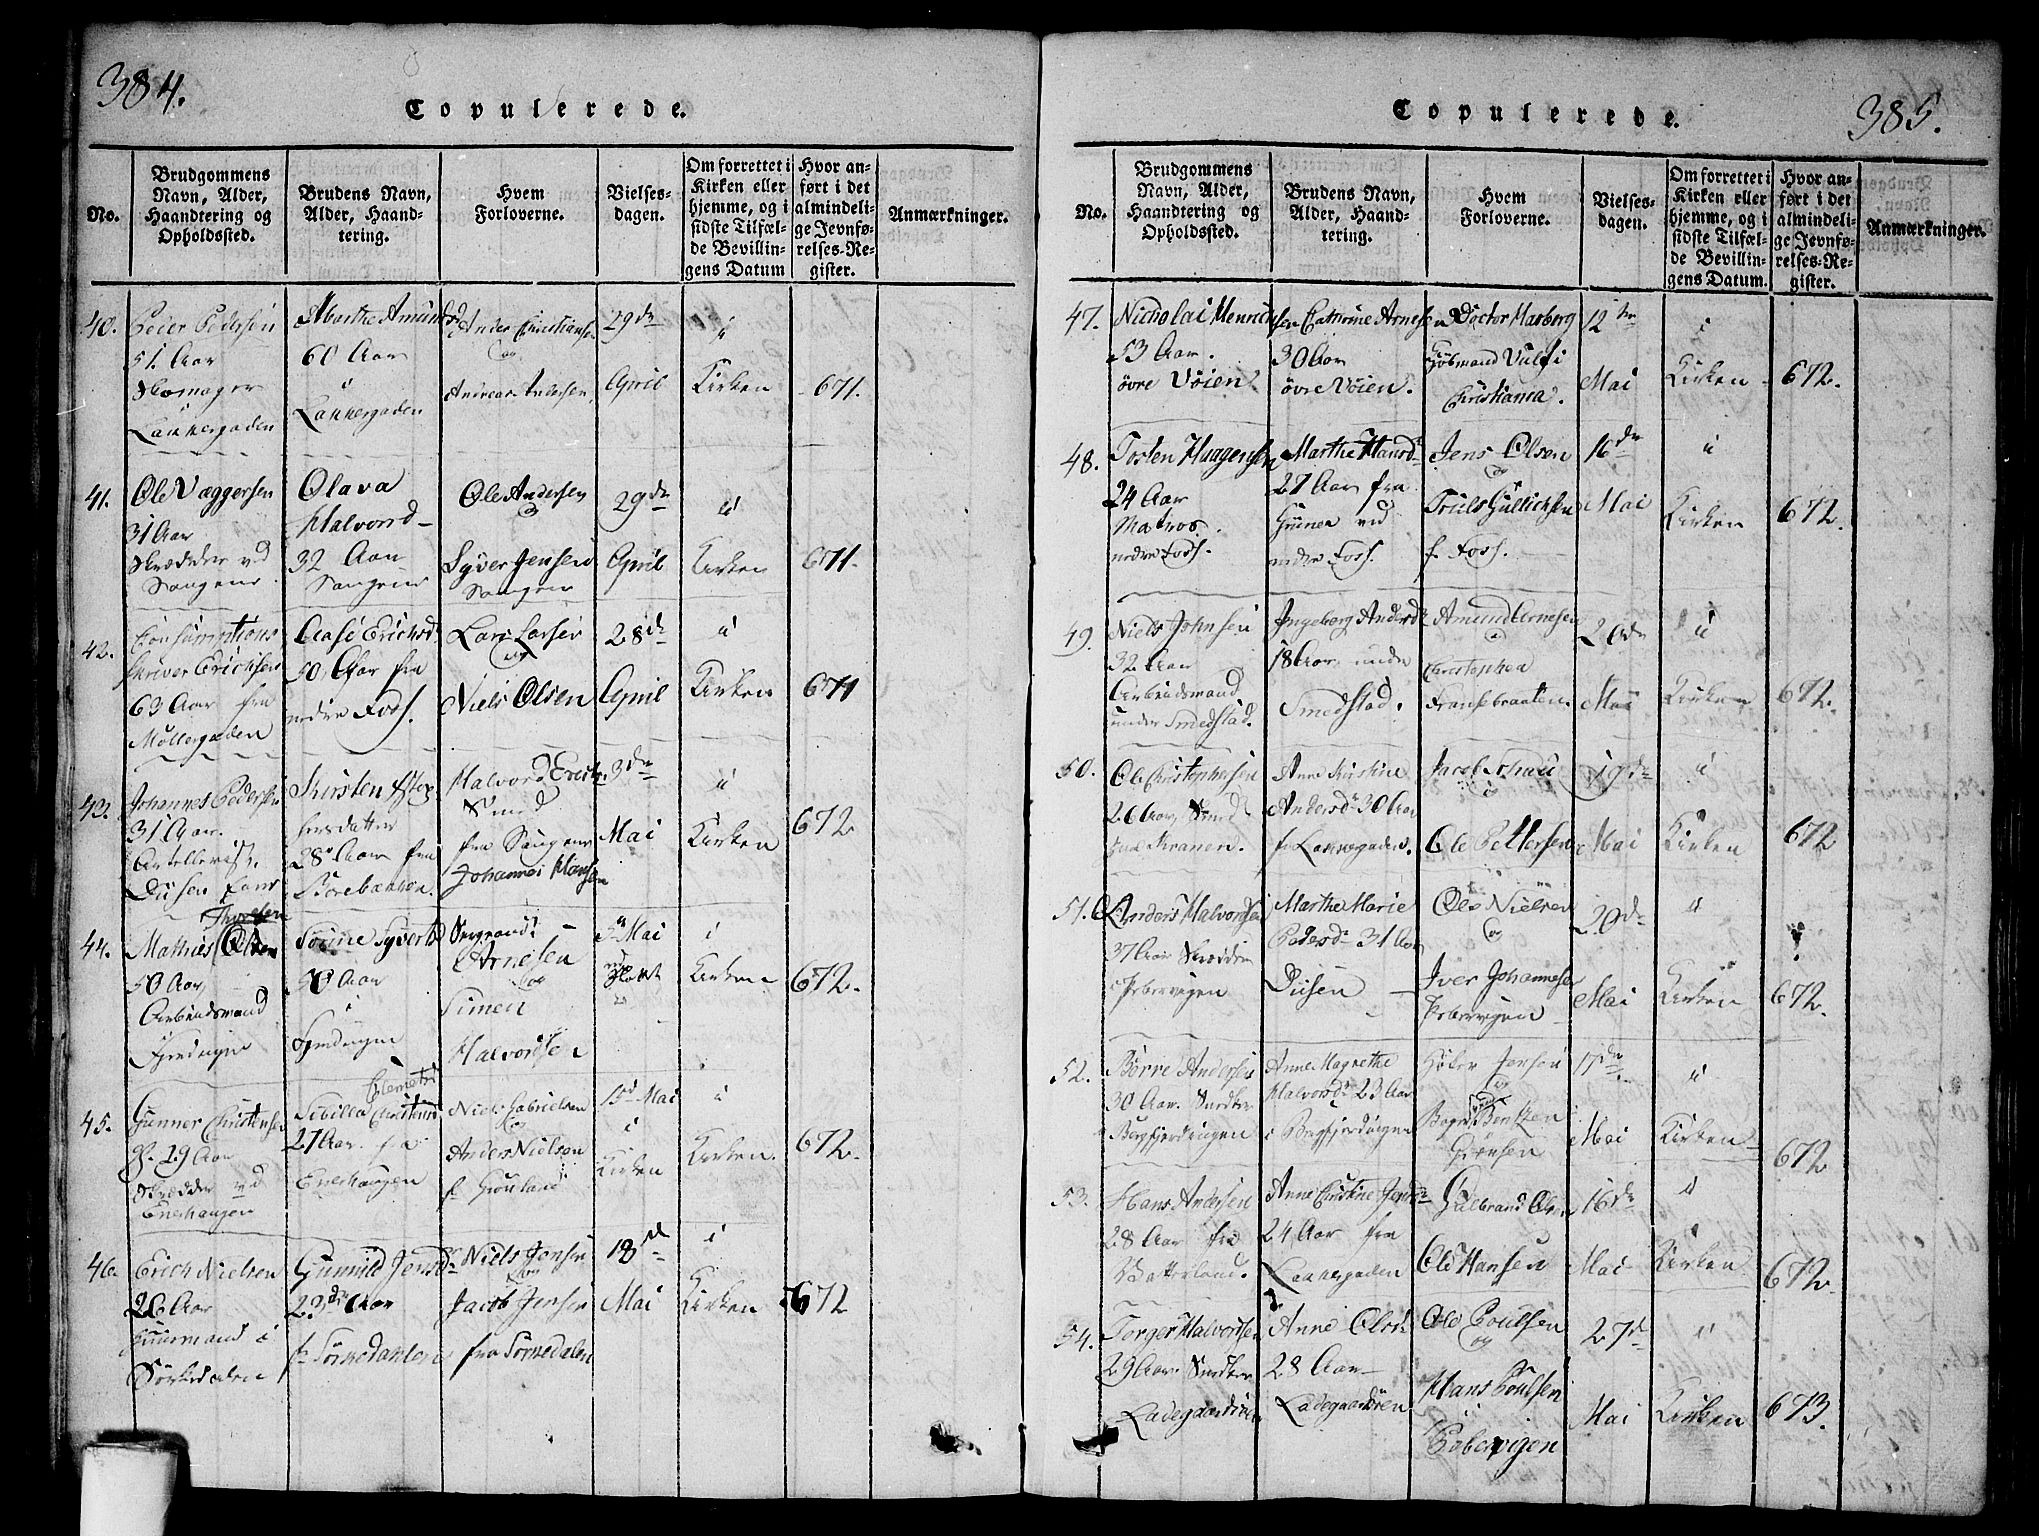 384.
Copulerede.
No.
Brudgommens
Navn, Alder,
Haandtering og
Opholdssted.
Brudens Navn,
Alder, Haand-
tering.
Hvem
Forloverne.
Vielses-
dagen.
Om forrettet i
Kirken eller
hjemme, og i
sidste Tilfæl-
de Bevillin-
gens Datum
Hvor an-
ført i det
almindeli-
ge Jevnfø-
relses-Re-
gister.
Anmærkninger.
40.
Peder Pedersen
51. Aar
Skomager
Lakkergaden
Marthe
60 Aar
i
Lakkergaden
Anders Christiansen
og
Andreas Andersen,
29de
April
i
Kirken
671.
41.
Ole Væggersen
31 Aar
Skrædder ved
Saugene
Olava
Halvorsd
32 Aar
Saugene
Ole Andersen
Syver Jensen
Saugene
29de
April
i
Kirken
671.
42.
Consumptions
skriver Erichsen
63 Aar fra
Møllergaden
Aase Erichsd
50 Aar fra
nedre Foss.
Lars Larsen
og
Niels Olsen
28de
April
i
Kirken
671
43.
Johannes Pedersen
31 Aar.
Artellerist.
Kirsten
hersdatter
28 Aar fra
Halvord Erichs.
Smed
fra Saugene
Johannes Hansen
3de
Mai
i
Kirken
672
44.
Mathias Olsen
50 Aar,
Arbeidsmand
Fjerdingen
Syvertsd
50 Aar
i
Fjerdingen
Sergeant
Arnesen
og
Simen
Halvordsen
5te Mai
i
Kirken
672.
45.
Gunner Christensen
29 Aar
Skrædder ved
Enerhaugen
Sibilla Christensd
Clemetsd
27 Aar. fra
Enerhaugen
Niels Gabrielsen
og
Anders Nielsen
f. Grönland
15d Mai
i
Kirken
i
Kirken.
672.
46.
Erich Nielsen
26 Aar
Huusmand i
Sörkedalen
Gunnild Jensd
23de Aar
f. Sörkedalen
Niels Jensen
og
Jacob Jensen
fra Sörkedalen
18d
Mai
i
Kirken
672
385.
Copulerede.
No.
Brudgommens
Navn, Alder,
Haandtering og
Opholdssted.
Brudens Navn,
Alder, Haand-
tering.
Hvem
Forloverne.
Vielses-
dagen.
Om forrettet i
Kirken eller
hjemme, og i
sidste Tilfæl-
de Bevillin-
gens Datum.
Hvor an-
ført i det
almindeli-
ge Jevnfø-
relses-Re-
gister.
Anmærkninger.
47.
Nicholai Henrichsen
53 Aar.
övre Vöien.
Cathrine Arnesen
30 Aar
övre Vöien.
Doctor Maxberg
Kjöbmand Vulf i
Christiania.
12te
Mai
i
Kirken
672.
48.
Tosten Haggensen
24 Aar
Matros.
nedre Foss.
Marthe Hansd
27 Aar fra
Grünen ved
nedre Foss.
Jens Olsen
og
Truls Gullichsen
f. Foss.
16de
Mai
i
Kirken
672.
49.
Niels Johnsen
32 Aar
Arbeidsmand
under Smedstad.
Ingeborg Andersd
18 Aar, under
Smedstad.
Amund Arnesen
Christopher
Fransebraaten.
20de
Mai
i
Kirken
672.
50.
Ole Christophersen
26 Aar, Smed
Anne Kirstine
Andersd 30 Aar
f. Lakkegaden.
Jacob Schau
Ole Pettersen
19de
Mai
i
Kirken
672
51.
Anders Halvordsen
37 Aar Skrædder
i Pebervigen
Marthe Marie
Pedersd 31 Aar
Ole Nielsen
og
Iver Johannesen
Pebervigen
20de
Mai
i
Kirken
672.
52.
Börre Andersen
30 Aar. Snedker
Bergfjerdingen
Anne Magrethe
Halvorsd 23 Aar
i Bergfjerdingen
Jensen
og
Bentzen
17de
Mai
i
Kirken
672
53.
Hans Andersen
28 Aar fra
Vatterland.
Anne Christine Jensd
24 Aar fra
Lakkergaden
Gulbrand Olsen
Ole Hansen
16de
Mai
i
Kirken
672.
54.
Torger Halvordsen
29 Aar. Snedker
Ladegaardsöen
Anne Olsd
28 Aar
Ladegaardsöen
Ole Poulsen
og
Hans Poulsen
Pebervigen
27d
Mai
i
Kirken
673.